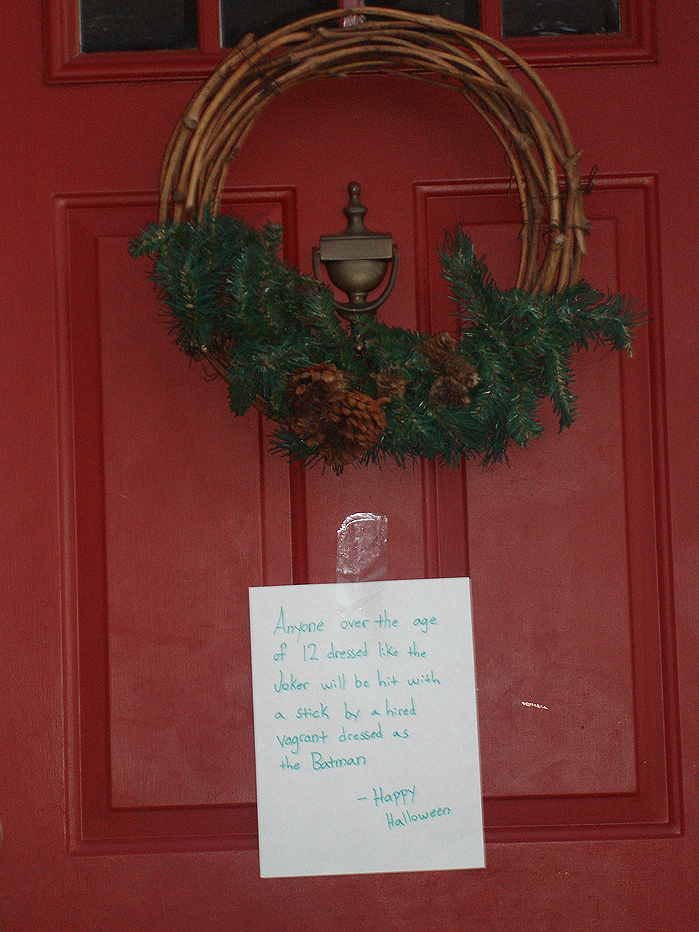 Anyone over the age
of 12 dressed like the
Joker will be hit with
a stick by a hired
vagrant dressed as
the Batman
- Happy
Halloween